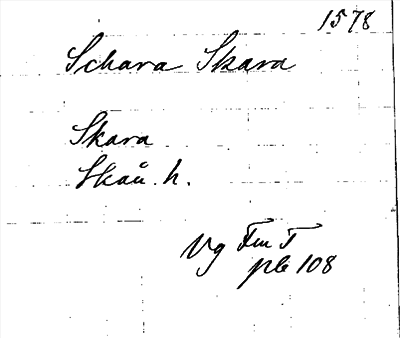 1578
Schara Skara
Skara
Skån. h.
Vg Fm I
pb 108